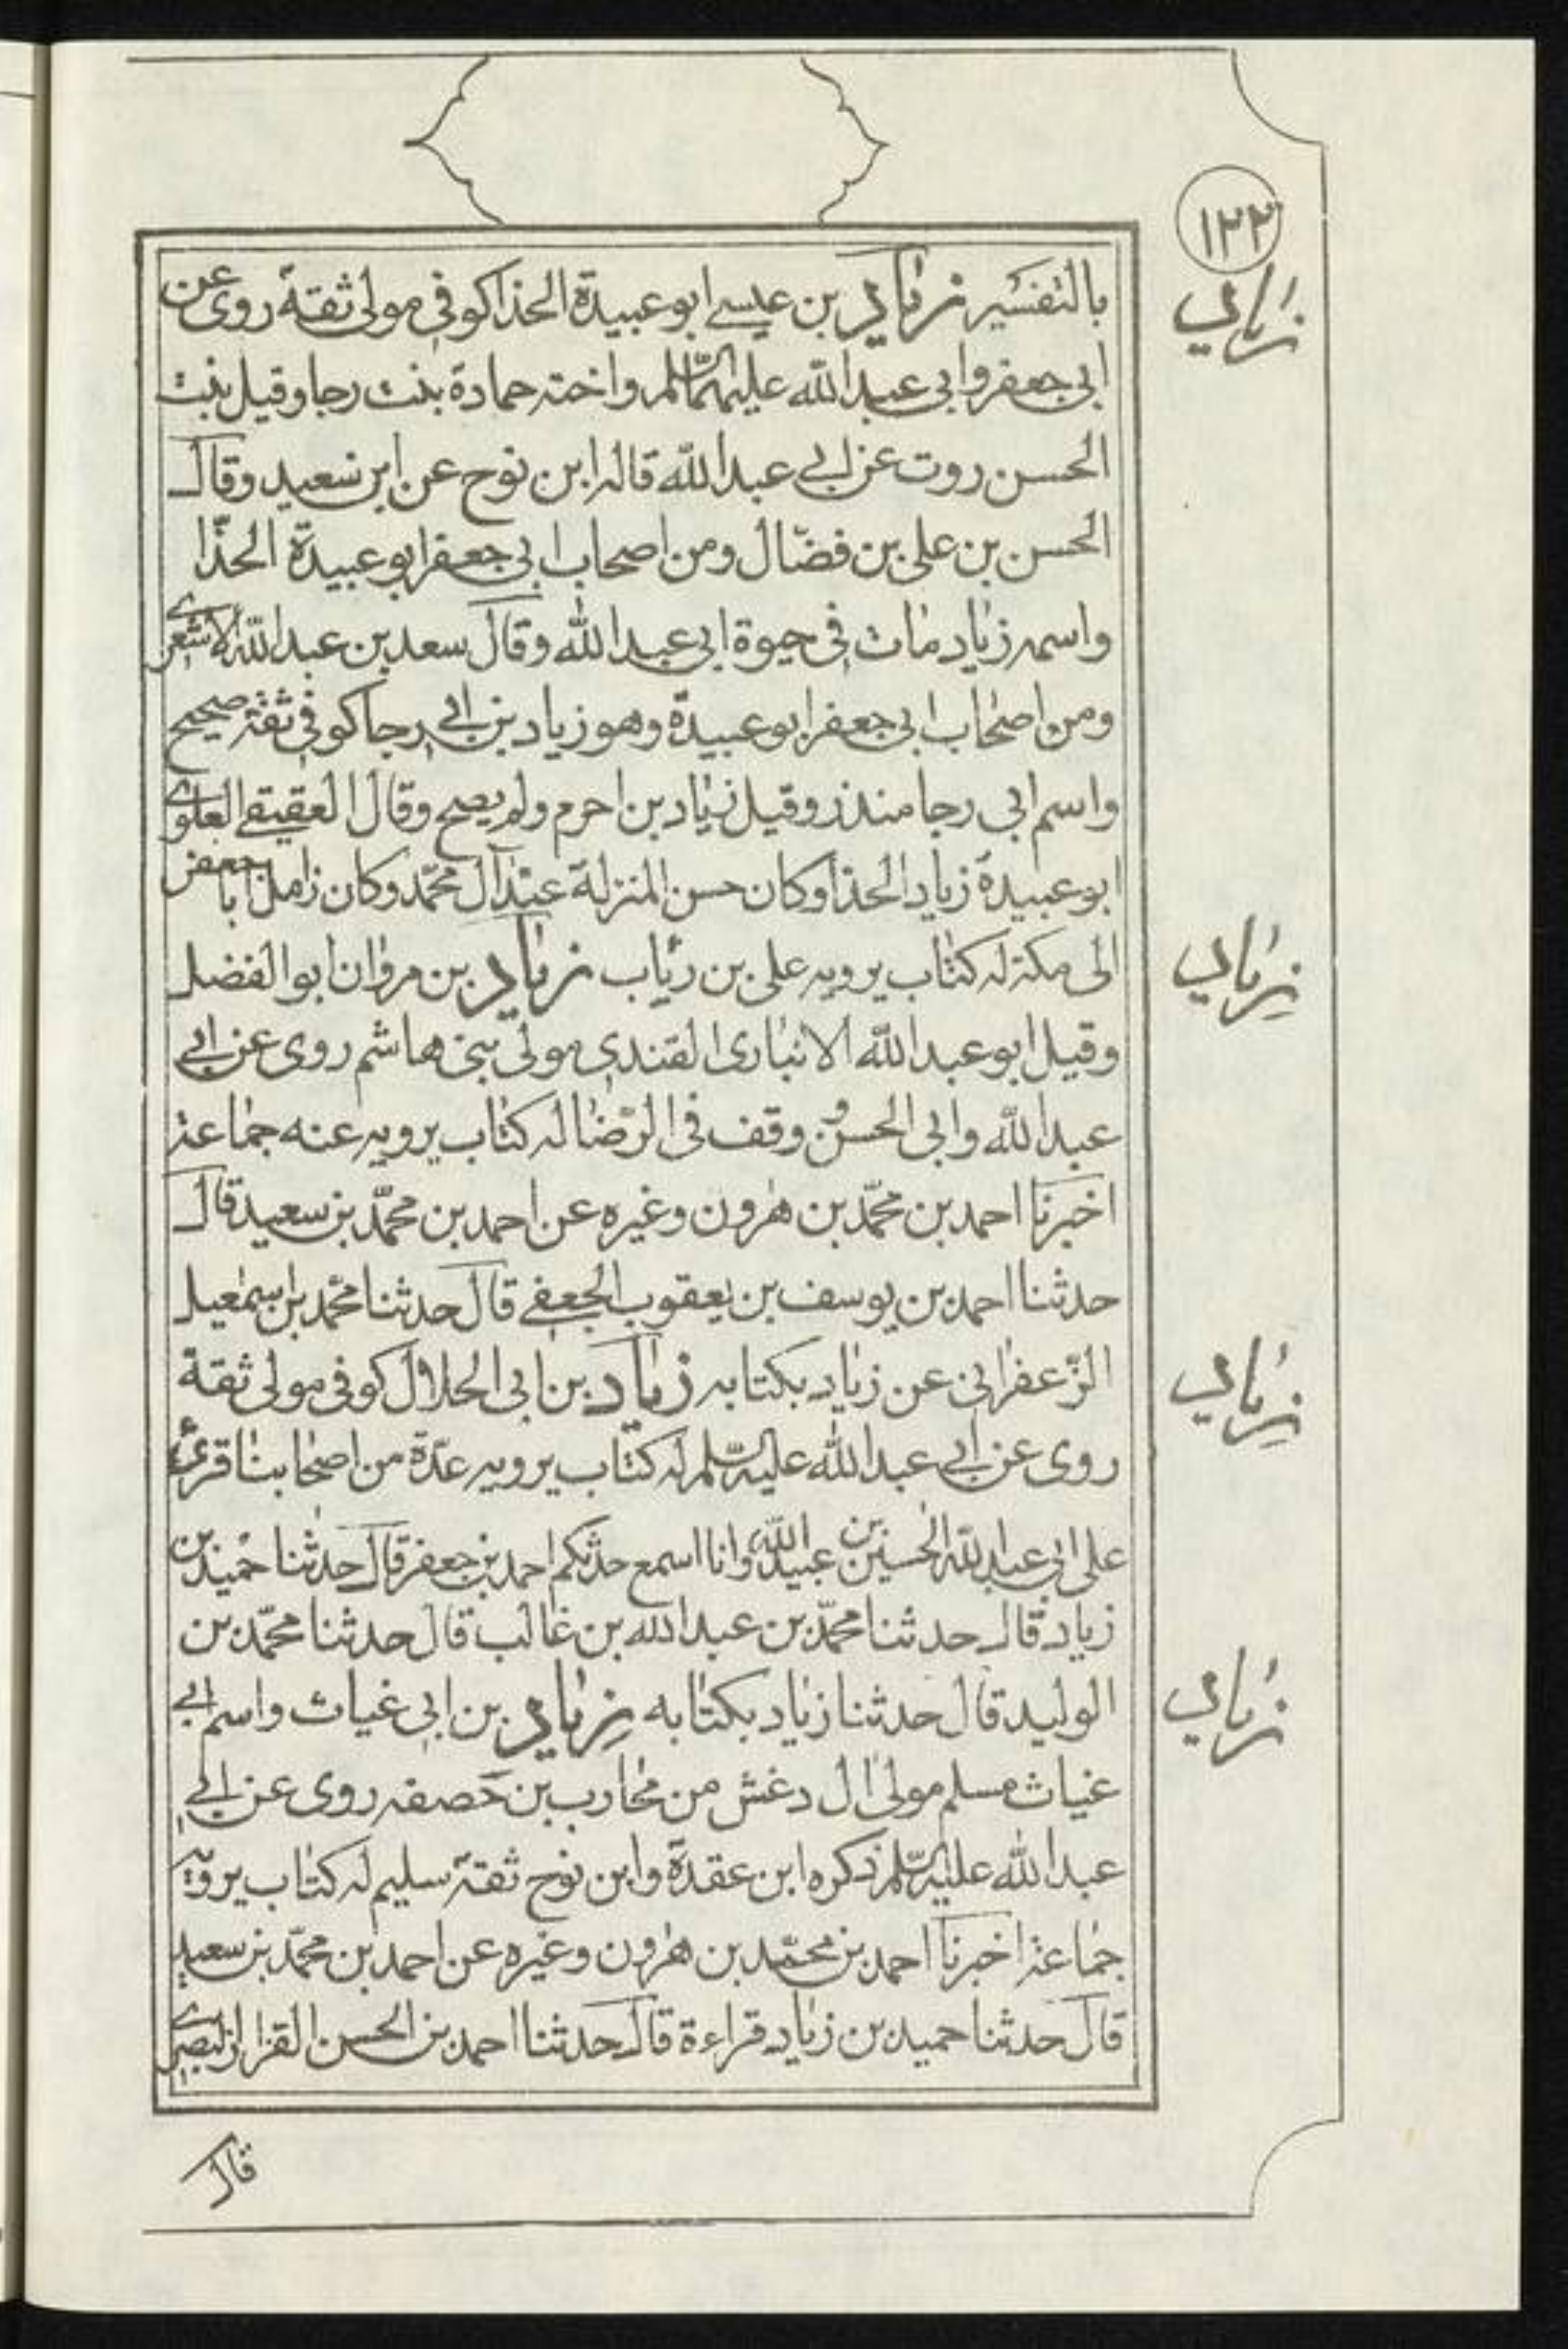 ١٢٢
زياد
بالتفسير زياد بن عيسى ابو عبيدة الحذا كوفي مولى ثقة روى عن
ابي جعفر وابي عبد الله عليهما السلم واخته حمادة بنت رجا وقيل بنت
الحسن روت عن ابي عبد الله قاله ابن نوح عن ابن سعيد وقال
الحسن بن علي بن فضّال ومن اصحاب ابي جعفر ابو عبيدة الحذّا
واسمه زياد مات في حيوة ابي عبد الله وقال سعد بن عبد الله الاشعري
ومن اصحاب ابي جعفر ابو عبيدة وهو زياد بن ابي رجا كوفي ثقة صحيح
واسم ابي رجا منذر وقيل زياد بن احرم ولم يصح وقال العقيقي العلوي
ابو عبيدة زياد الحذا وكان حسن المنزلة عند آل محمّد وكان زامل ابا جعفر
زياد
الى مكة له كتاب يرويه علي بن رئاب زياد بن مروان ابو الفضل
وقيل ابو عبد الله الانباري القندي مولى بني هاشم روى عن ابي
عبد الله وابي الحسن و وقف في الرّضا له كتاب يرويه عنه جماعة
اخبرنا احمد بن محمّد بن هرون وغيره عن احمد بن محمّد بن سعيد قال
حدثنا احمد بن يوسف بن يعقوب الجعفي قال حدثنا محمّد بن اسمعيل
زياد
الزّعفراني عن زياد بكتابه زياد بن ابي الحلال كوفي مولى ثقة
روى عن ابي عبد الله عليه السّلم له كتاب يرويه عدّة من اصحابنا قرئ
على ابي عبد الله الحسين بن عبيد الله وانا اسمع حدثكم احمد بن جعفر قال حدثنا حميد بن
زياد قال حدثنا محمّد بن عبد الله بن غالب قال حدثنا محمّد بن
زياد
الوليد قال حدثنا زياد بكتابه زياد بن ابي غياث واسم ابي
غياث مسلم مولى ال دغش من محارب بن خصفه روى عن ابي
عبد الله عليه السّلم ذكره ابن عقدة وابن نوح ثقة سليم له كتاب يرويه
جماعة اخبرنا احمد بن محمّد بن هرون وغيره عن احمد بن محمّد بن سعيد
قال حدثنا حميد بن زياد قراءة قال حدثنا احمد بن الحسن القزاز البصري
قال